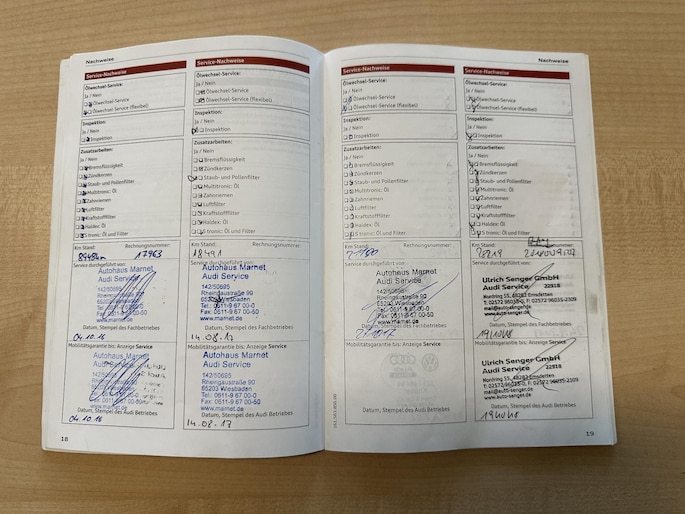 Nachweise
Service-Nachweise
Ölwechsel-Service:
Ja / Nein
Ölwechsel-Service
Ölwechsel-Service (flexibel)
Inspektion:
Ja / Nein
Inspektion
Zusatzarbeiten:
Ja / Nein
Bremsflüssigkeit
Zündkerzen
Staub- und Pollenfilter
Multitronic: Öl
Zahnriemen
Luftfilter
Kraftstofffilter
Haldex: Öl
S tronic: Öl und Filter
Km Stand: Rechnungsnummer:
Service durchgeführt von:
Autohaus Marnet
Audi Service
142/50695
Rheingaustraße 90
65203 Wiesbaden
Tel.: 0611-9 67 00-0
Fax: 0611-9 67 00-50
www.marnet.de
Datum, Stempel des Fachbetriebes
04.10.16
Mobilitätsgarantie bis: Anzeige Service
Autohaus Marnet
Audi Service
142/50695
Rheingaustraße 90
65203 Wiesbaden
Tel.: 0611-9 67 00-0
Fax: 0611-9 67 00-50
www.marnet.de
Datum, Stempel des Audi Betriebes
04.10.16
18
Service-Nachweise
Ölwechsel-Service:
Ja / Nein
Ölwechsel-Service
Ölwechsel-Service (flexibel)
Inspektion:
Ja / Nein
Inspektion
Zusatzarbeiten:
Ja / Nein
Bremsflüssigkeit
Zündkerzen
Staub- und Pollenfilter
Multitronic: Öl
Zahnriemen
Luftfilter
Kraftstofffilter
Haldex: Öl
S tronic: Öl und Filter
Km Stand: Rechnungsnummer:
18491
Service durchgeführt von:
Autohaus Marnet
Audi Service
142/50695
Rheingaustraße 90
65203 Wiesbaden
Tel.: 0611-9 67 00-0
Fax: 0611-9 67 00-50
www.marnet.de
Datum, Stempel des Fachbetriebes
14.08.17
Mobilitätsgarantie bis: Anzeige Service
Autohaus Marnet
Audi Service
142/50695
Rheingaustraße 90
65203 Wiesbaden
Tel.: 0611-9 67 00-0
Fax: 0611-9 67 00-50
www.marnet.de
Datum, Stempel des Audi Betriebes
14.08.17
Service-Nachweise
Ölwechsel-Service:
Ja / Nein
Ölwechsel-Service
Ölwechsel-Service (flexibel)
Inspektion:
Ja / Nein
Inspektion
Zusatzarbeiten:
Ja / Nein
Bremsflüssigkeit
Zündkerzen
Staub- und Pollenfilter
Multitronic: Öl
Zahnriemen
Luftfilter
Kraftstofffilter
Haldex: Öl
S tronic: Öl und Filter
Km Stand: Rechnungsnummer:
Service durchgeführt von:
Autohaus Marnet
Audi Service
142/50695
Rheingaustraße 90
65203 Wiesbaden
Tel.: 0611-9 67 00-0
Fax: 0611-9 67 00-50
www.marnet.de
Datum, Stempel des Fachbetriebes
Mobilitätsgarantie bis: Anzeige Service
Datum, Stempel des Audi Betriebes
Nachweise
Service-Nachweise
Ölwechsel-Service:
Ja / Nein
Ölwechsel-Service
Ölwechsel-Service (flexibel)
Inspektion:
Ja / Nein
Inspektion
Zusatzarbeiten:
Ja / Nein
Bremsflüssigkeit
Zündkerzen
Staub- und Pollenfilter
Multitronic: Öl
Zahnriemen
Luftfilter
Kraftstofffilter
Haldex: Öl
S tronic: Öl und Filter
Km Stand:
Service durchgeführt von:
Ulrich Senger GmbH
Audi Service 22918
Nordring 55, 48282 Emsdetten
T: 02572 96035-0, F: 02572 96035-2309
mail@auto-senger.de
www.auto-senger.de
Datum, Stempel des Fachbetriebes
Mobilitätsgarantie bis: Anzeige Service
Ulrich Senger GmbH
Audi Service 22918
Nordring 55, 48282 Emsdetten
T: 02572 96035-0, F: 02572 96035-2309
mail@auto-senger.de
www.auto-senger.de
Datum, Stempel des Audi Betriebes
19